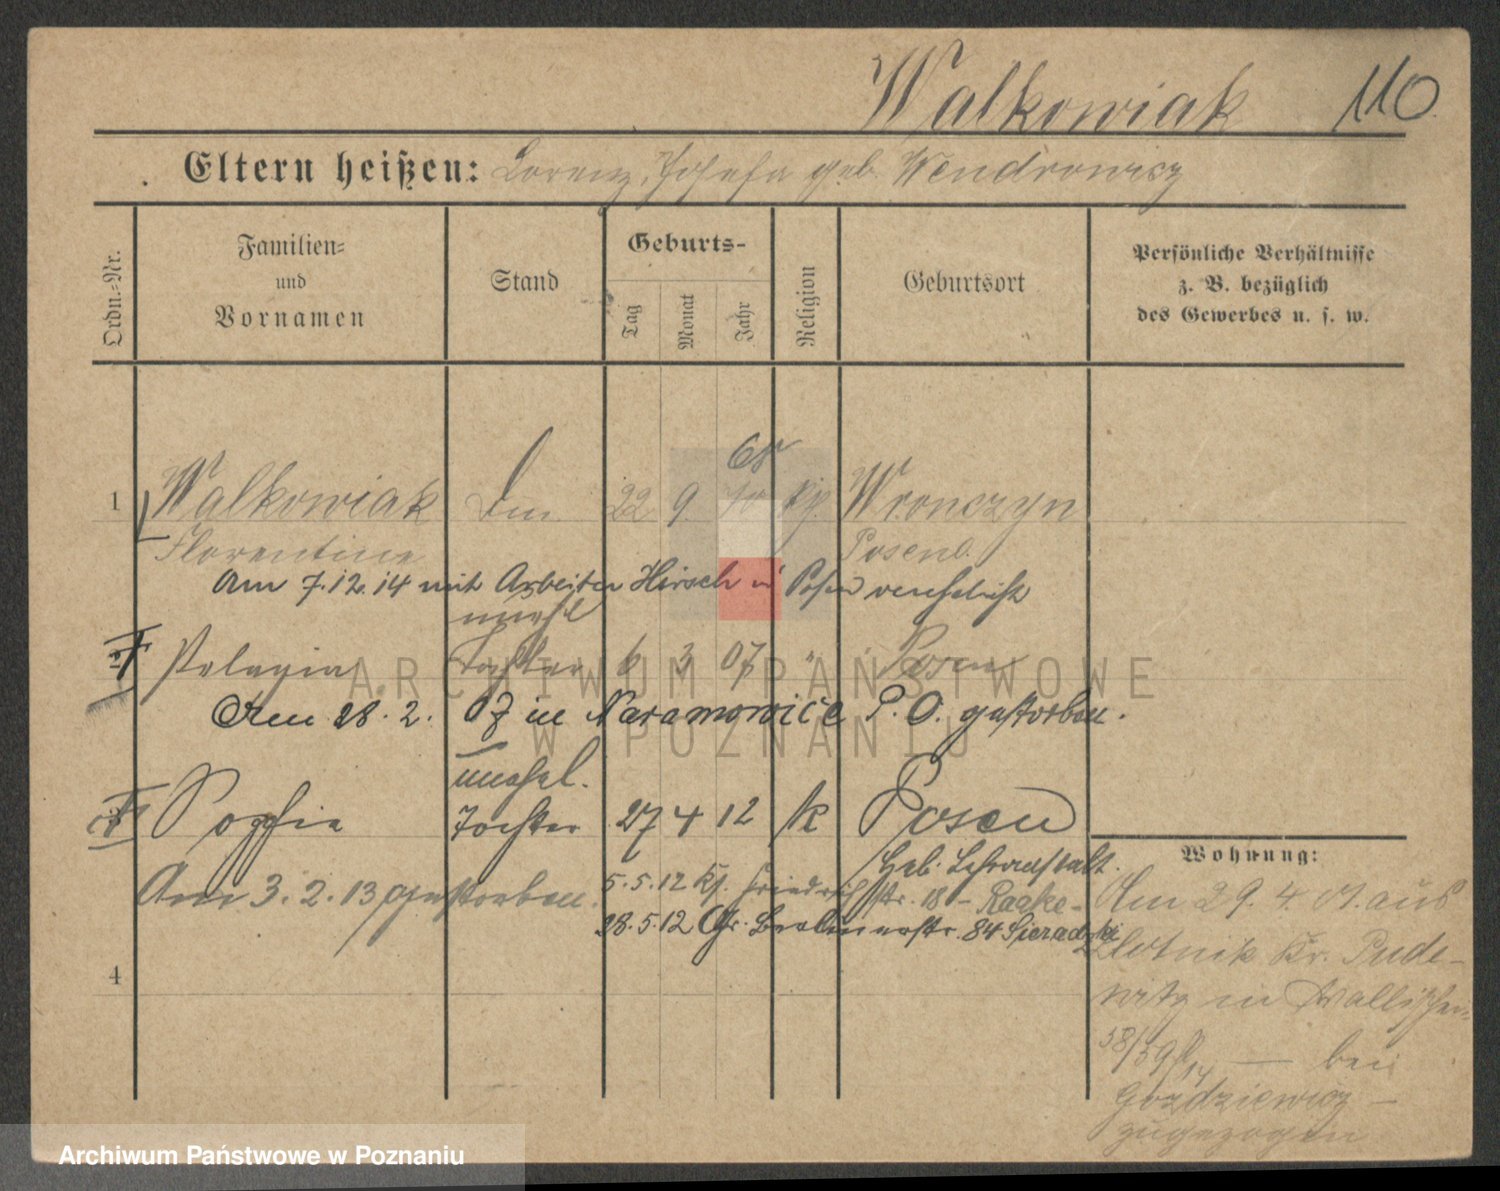 Walkowiak 110.
Eltern heißen: Lorenz, Josefa geb. Wendrowicz
Ordn.-Nr.
Familien- und Vornamen
Stand
Geburts-
Tag
Monat
Jahr
Religion
Geburtsort
Persönliche Verhältnisse
z. B. bezüglich
des Gewerbes u. s. w.
68
1 Walkowiak 22 9 Wronczyn
Florentine Posen O.
Am 7.12.14 mit Arbeiter Hirsch in Posen verehelicht
unehl
2 Pelagia Tochter 6 3 07 " Posen
Am 28. 2. 07 in Naramowice P. O. gestorben.
unehel.
3 Sophie Tochter 27 4 12 k Posen
Heb. Lehranstalt.
Am 3. 2. 13 gestorben.
5. 5. 12 Friedrichstr. 18 - Raeke -
28. 5. 12 Gr. Berlinerstr. 84 Sieradzki
4
Wohnung:
Am 29. 4. 01. aus
Zlotnik Kr. Pude-
witz in Wallischei-
58/59 — bei
Goździewicz —
zugezogen
ARCHIWUM PAŃSTWOWE
W POZNANIU
Archiwum Państwowe w Poznaniu